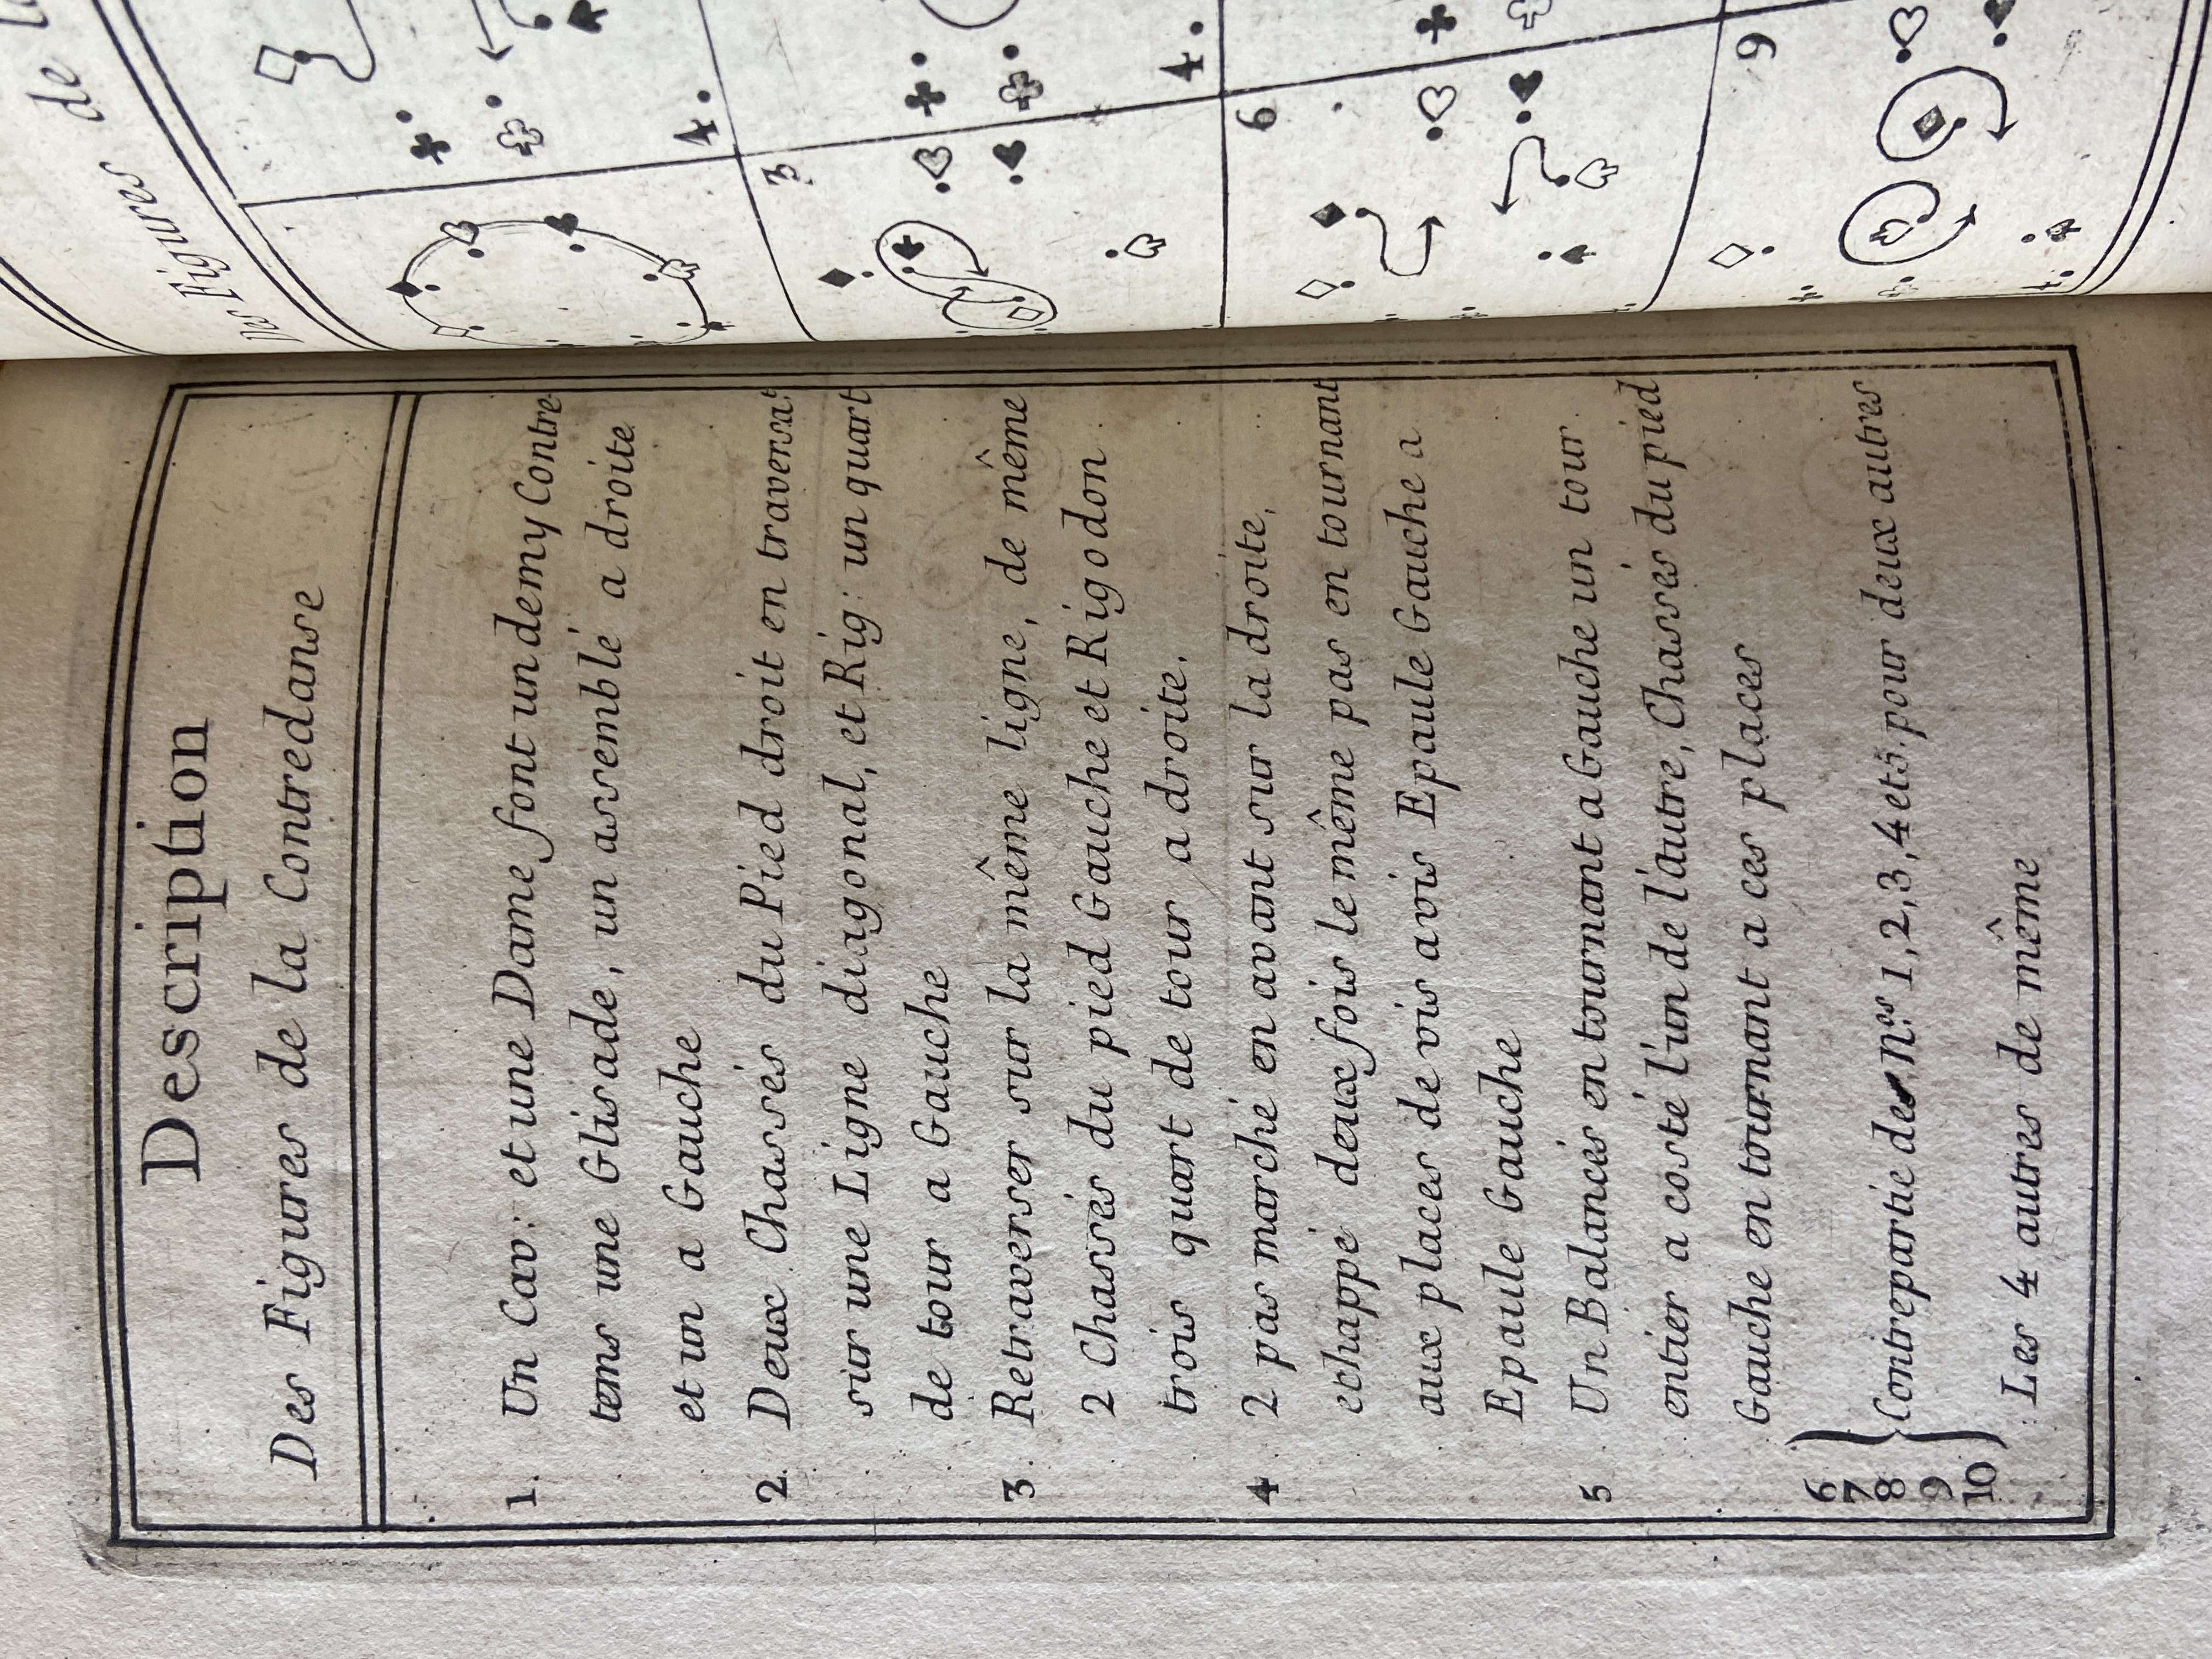 Description
Des Figures de la Contredanse
1. Un Cav: et une Dame font un demy Contre
tems une Glisade, un assemblé a droite
et un a Gauche
2. Deux Chassés du Pied droit en traversat
sur une Ligne diagonal, et Rig: un quart
de tour a Gauche
3. Retraverser sur la même ligne, de même
2 Chassés du pied Gauche et Rigodon
trois quart de tour a droite.
4. 2 pas marché en avant sur la droite,
echappé deux fois le même pas en tournant
aux places de vis avis Epaule Gauche a
Epaule Gauche
5. Un Balancés en tournant a Gauche un tour
entier a costé l'un de l'autre, Chassés du pied
Gauche en tournant a ces places
6
7
8
9
10
Contrepartie des N.os 1, 2, 3, 4 et 5. pour deux autres
Les 4 autres de même
Des Figures de
4.
3
4.
6
9